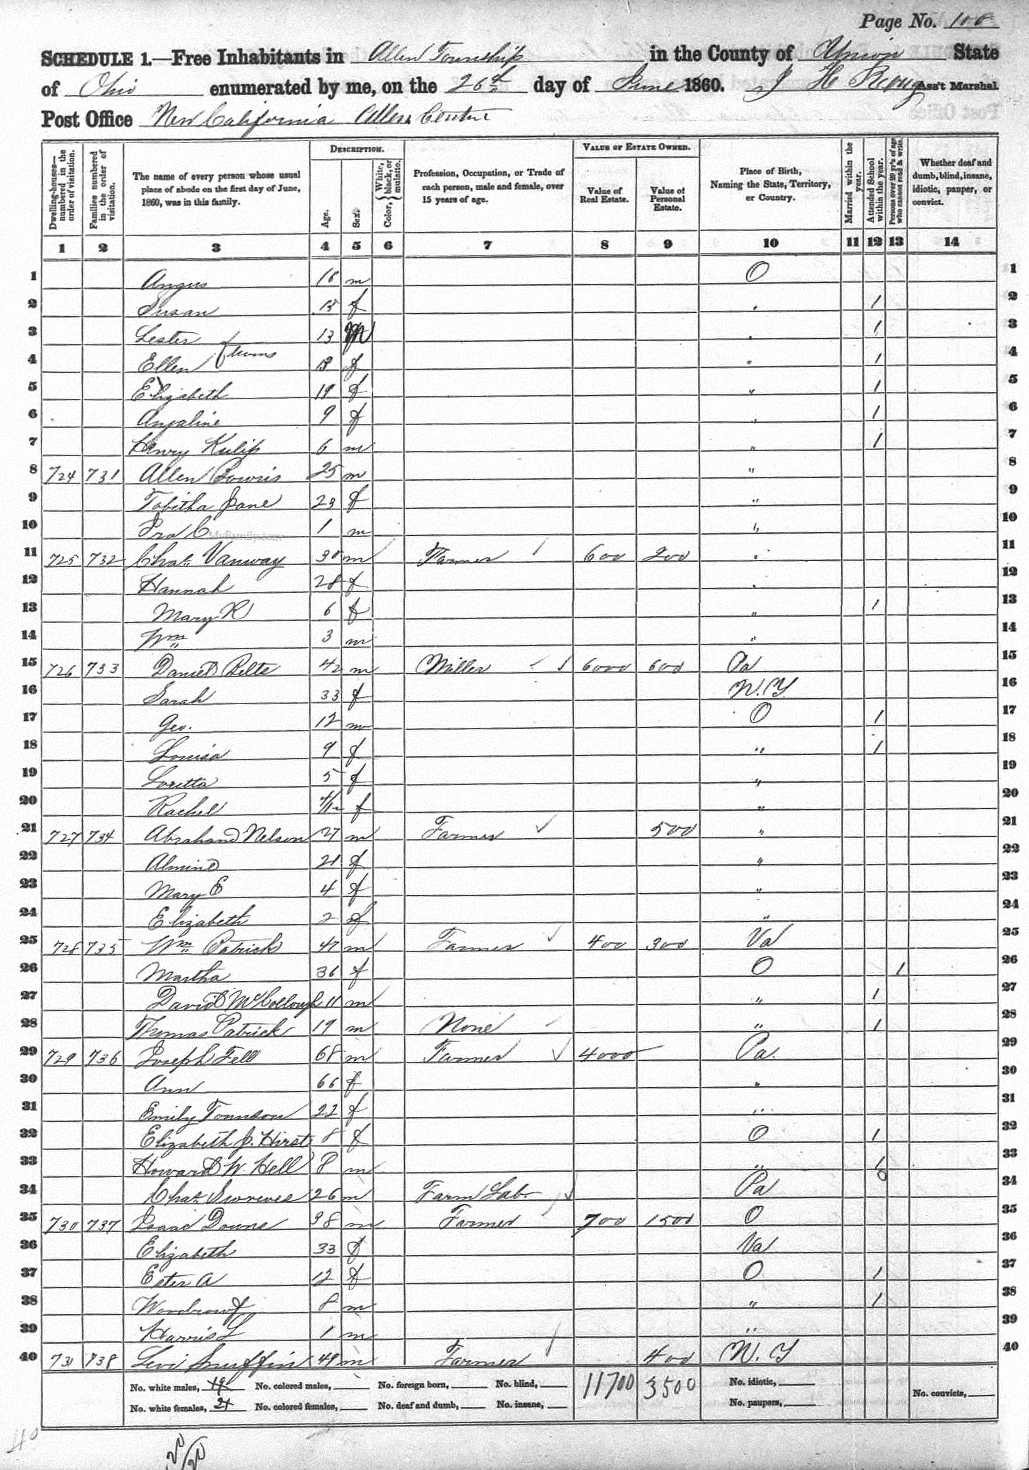 Page No. 100
SCHEDULE 1.—Free Inhabitants in Allen Township in the County of Union State
of Ohio enumerated by me, on the 26th day of June 1860. J H Ass't Marshal
Post Office New California Allen Center
DESCRIPTION. VALUE OF ESTATE OWNED.
Dwelling-houses—numbered in the order of visitation. Families numbered in the order of visitation. The name of every person whose usual place of abode on the first day of June, 1860, was in this family. Age. Sex. Color, { White, black, or mulatto. Profession, Occupation, or Trade of each person, male and female, over 15 years of age. Value of Real Estate. Value of Personal Estate. Place of Birth, Naming the State, Territory, or Country. Married within the year. Attended School within the year. Persons over 20 y'rs of age who cannot read & write. Whether deaf and dumb, blind, insane, idiotic, pauper, or convict.
1 2 3 4 5 6 7 8 9 10 11 12 13 14
1 Angus 16 m O 1
2 Susan 15 f " 1 2
3 Lester 13 M " 1 3
4 Ellen f " 1 4
5 Elizabeth f " 1 5
6 Angaline 9 f " 1 6
7 Henry 6 m " 1 7
8 724 731 Allen 25 m " 8
9 Tabitha Jane 23 f " 9
10 Ira C 1 m " 10
11 725 732 Chas. Vanway 30 m Farmer 600 200 " 11
12 Hannah 28 f " 12
13 Mary R 6 f " 1 13
14 Wm 3 m " 14
15 726 733 Daniel 42 m Miller 6000 600 Pa 15
16 Sarah 33 f N.Y 16
17 Geo. 12 m O 1 17
18 Louisa 9 f " 1 18
19 Loretta 5 f " 19
20 Rachel f " 20
21 727 734 Abraham Nelson 27 m Farmer 500 " 21
22 21 f " 22
23 Mary E 4 f " 23
24 Elizabeth 2 f " 24
25 728 735 Wm Patrick 47 m Farmer 400 300 Va 25
26 Martha 36 f O 1 26
27 David McCollough 11 m " 1 27
28 Thomas Patrick 19 m None " 1 28
29 729 736 Joseph Fell 68 m Farmer 4000 Pa. 29
30 Ann 66 f " 30
31 Emily 22 f " 31
32 Elizabeth J. Hirst 8 f O 1 32
33 Howard W Hell 8 m " 1 33
34 Chas. 26 m Farm Lab. Pa 34
35 730 737 Isaac Downs 38 m Farmer 700 1500 O 35
36 Elizabeth 33 f Va 36
37 Ester A 12 f O 1 37
38 8 m " 1 38
39 Harris L 1 m " 39
40 731 738 Levi 49 m Farmer 400 N.Y 40
No. white males, 19 No. colored males, No. foreign born, No. blind, 11700 3500 No. idiotic,
No. white females, 21 No. colored females, No. deaf and dumb, No. insane, No. paupers, No. convicts,
40
20/20